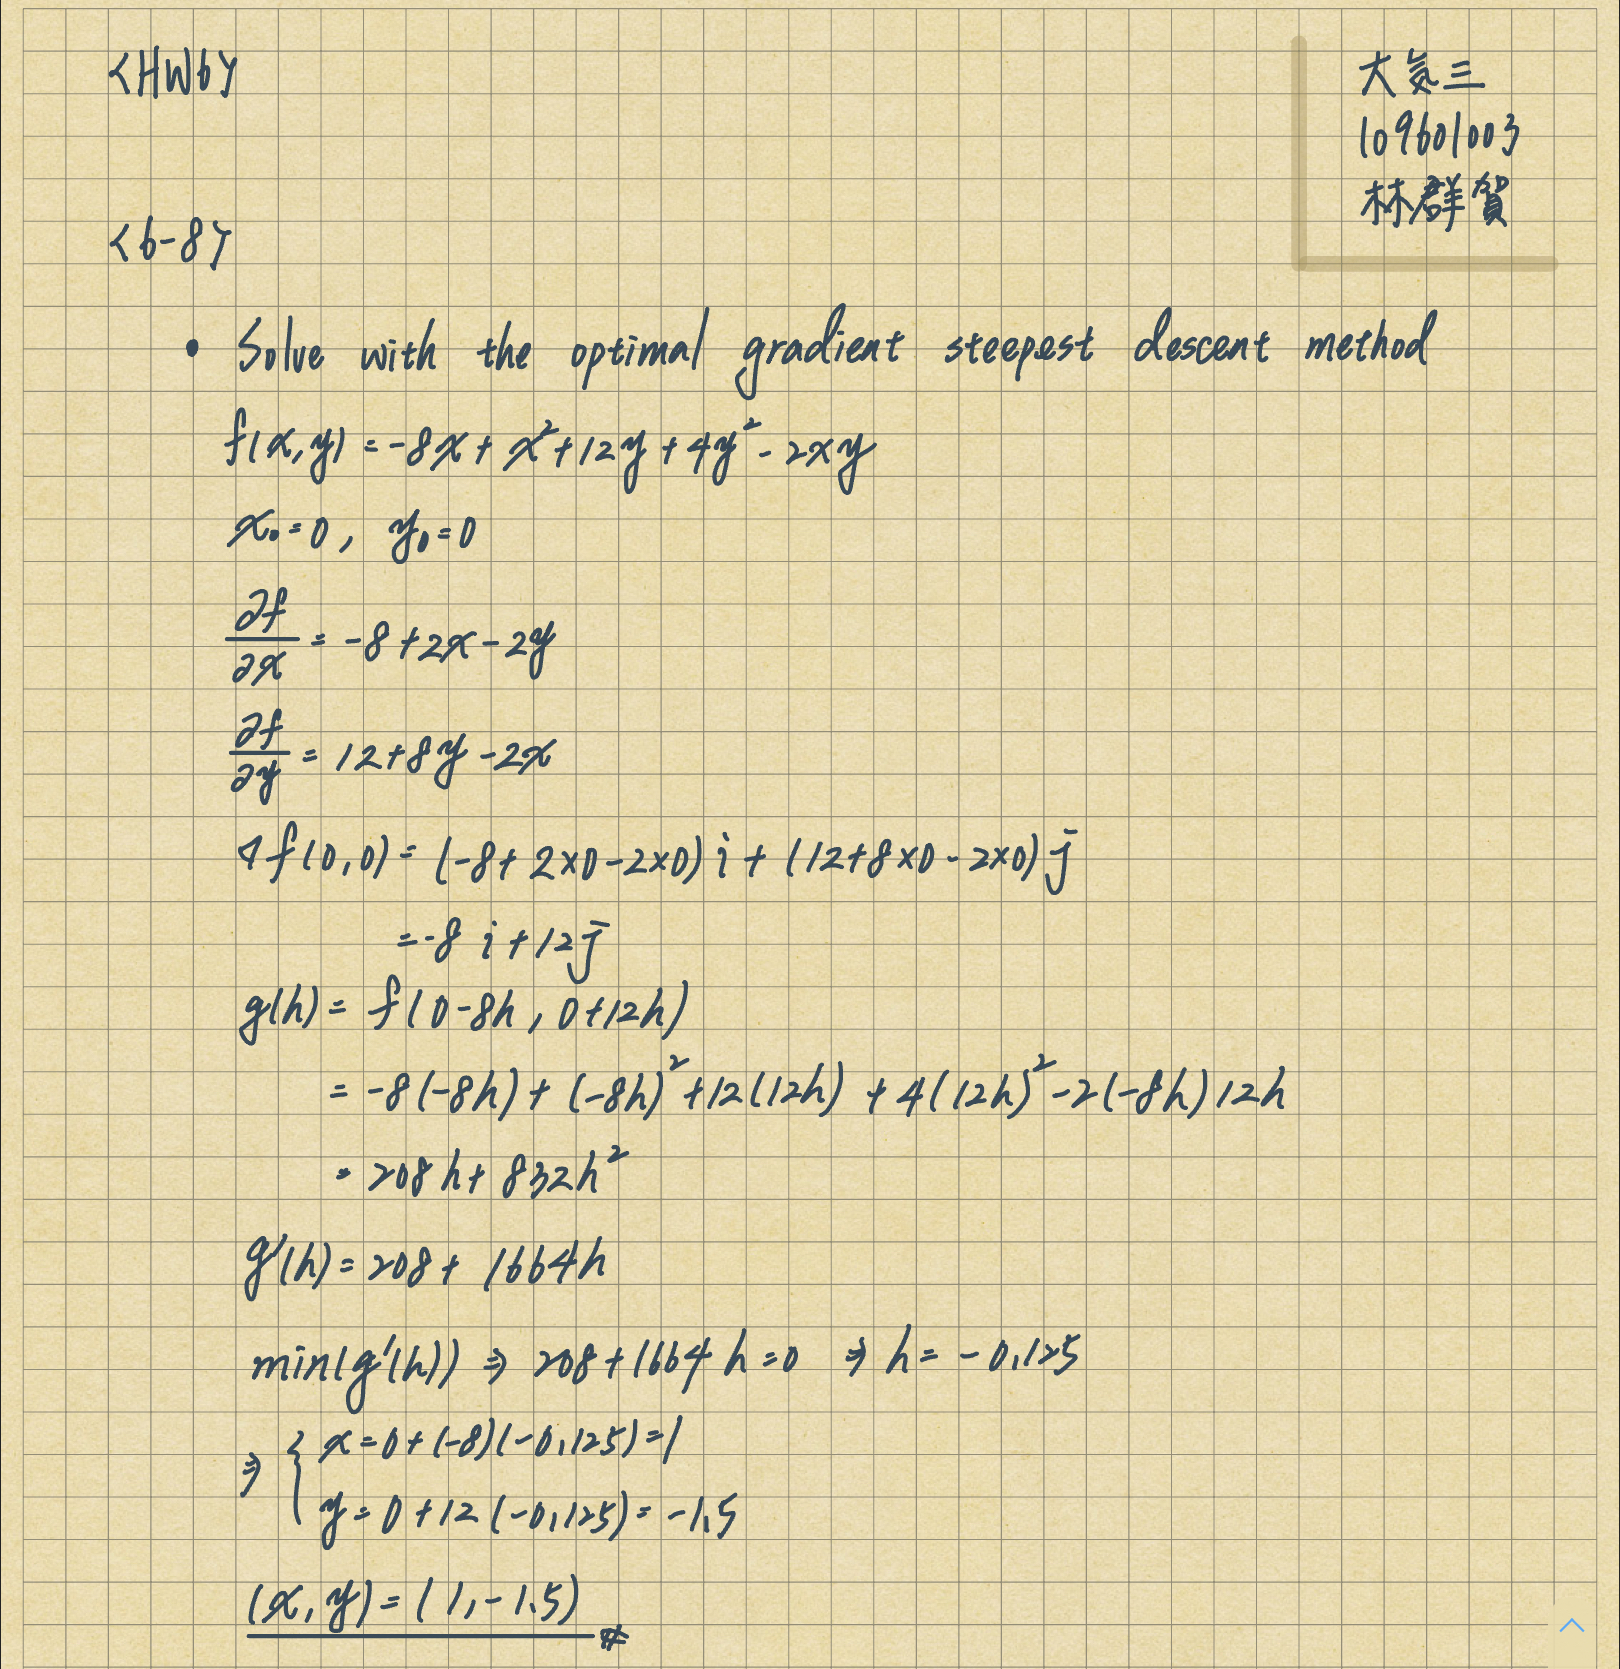 <HW6>
大気三
109601003
林群賀
<6-8>
• Solve with the optimal gradient steepest descent method
f(x,y) = -8x + x² + 12y + 4y² - 2xy
x₀ = 0, y₀ = 0
∂f/∂x = -8 + 2x - 2y
∂f/∂y = 12 + 8y - 2x
∇f(0,0) = (-8 + 2×0 - 2×0) i + (12 + 8×0 - 2×0) j
= -8 i + 12 j
g(h) = f(0 - 8h, 0 + 12h)
= -8(-8h) + (-8h)² + 12(12h) + 4(12h)² - 2(-8h)12h
= 208h + 832h²
g'(h) = 208 + 1664h
min(g'(h)) ⇒ 208 + 1664h = 0 ⇒ h = -0.125
⇒ { x = 0 + (-8)(-0.125) = 1
y = 0 + 12(-0.125) = -1.5
(x, y) = (1, -1.5) #